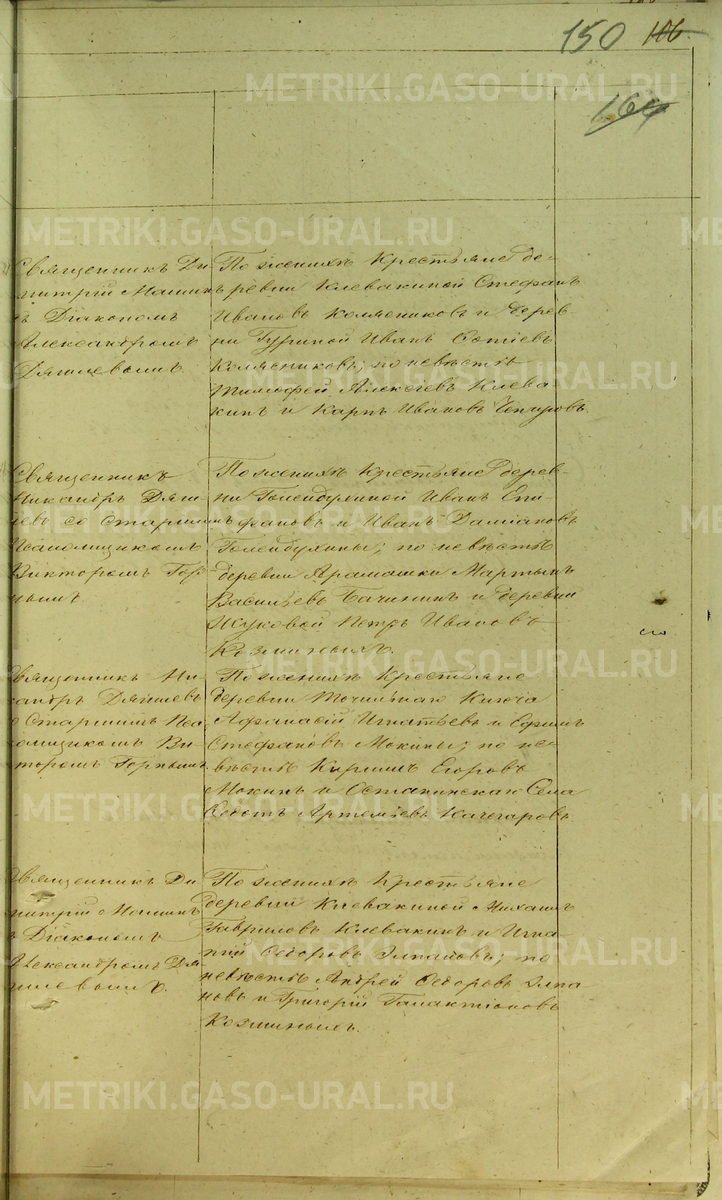 150 106
164
Священникъ Ди-
митрій Машинъ
съ Діакономъ
Александромъ
Дягилевымъ
По женихѣ Крестьяне де-
ревни Клевакиной Стефанъ
Ивановъ Колясниковъ и дерев
ни Гуриной Иванъ
Колясниковъ; по невѣстѣ
Тимофей Алексѣевъ Клева
кинъ и Карпъ Ивановъ
Священникъ
Никандръ Дяги-
левъ со Старшимъ
Псаломщикомъ
Викторомъ Гор-
нымъ
По женихѣ Крестьяне дерев-
ни Голендухиной Иванъ Епи-
фановъ и Иванъ Даміановъ
Голендухины; по невѣстѣ
деревни Арамашки Мартынъ
Васильевъ Бачининъ и деревни
Жуковой Петръ Ивановъ
Козминыхъ.
Священникъ Ни-
кандръ Дягилевъ
со Старшимъ Пса-
ломщикомъ Ви-
кторомъ Горнымъ
По женихѣ Крестьяне
деревни Точильнаго Ключа
Афанасій Игнатьевъ и Ефимъ
Стефановъ Мокины; по не-
вѣстѣ Кирилъ Егоровъ
Мокинъ и Останинскаго Села
Федотъ Артемьевъ Качегаровъ
Священникъ Ди-
митрій Машинъ
съ Діакономъ
Александромъ Дя-
гилевымъ.
По женихѣ Крестьяне
деревни Клевакиной Михаилъ
Гавриловъ Клевакинъ и Игна-
тій Федоровъ; по
невѣстѣ Андрей Федоровъ
и Григорій Галактіоновъ
Козминыхъ.
METRIKI.GASO-URAL.RU